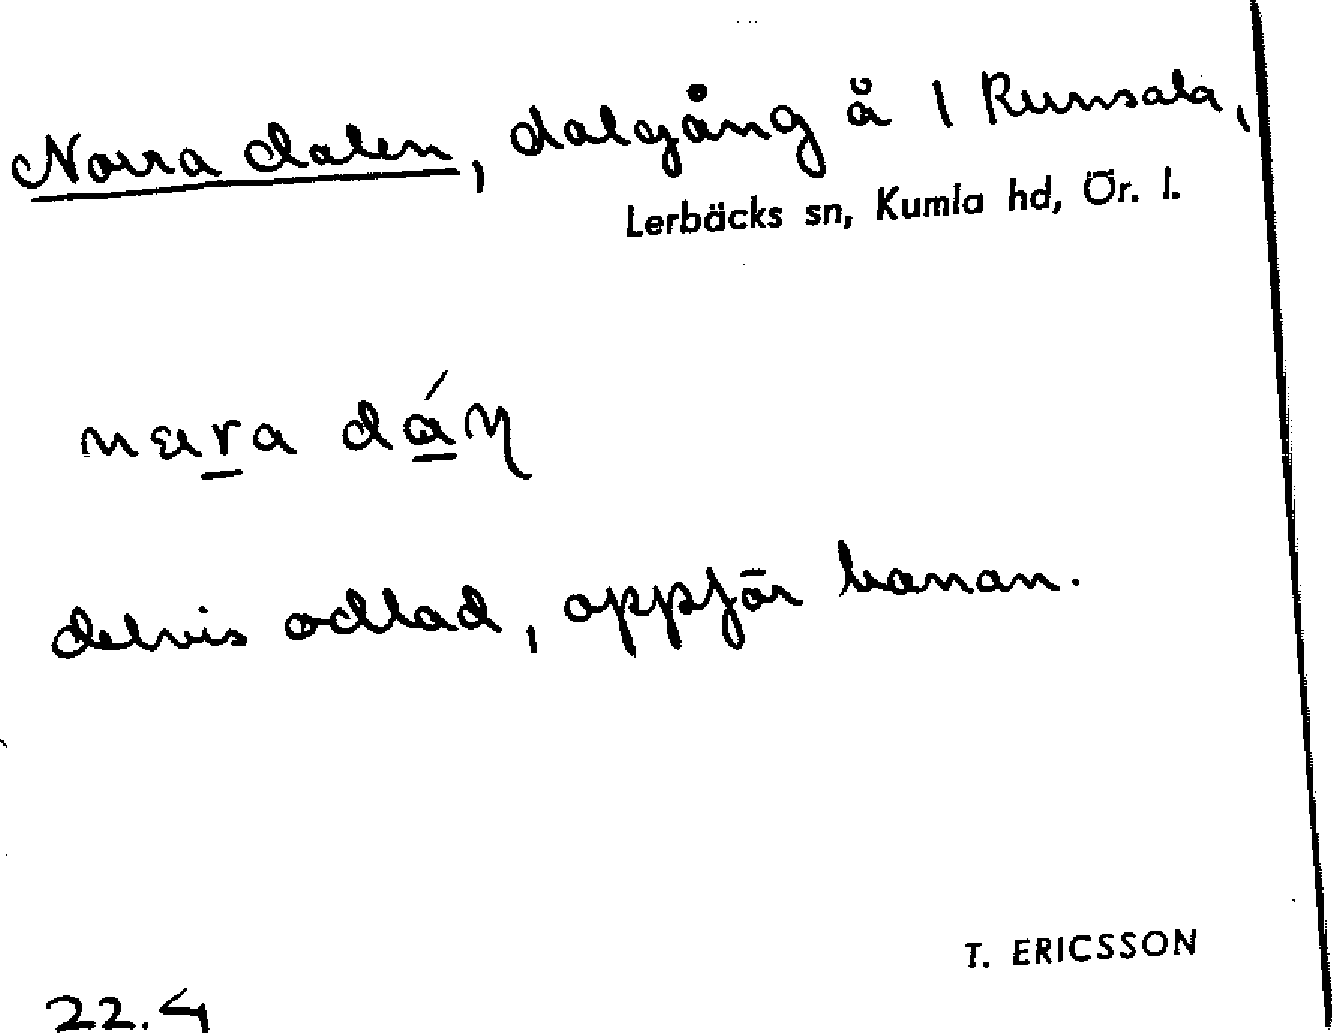 Norra dalen, dalgång å 1 Runsala,
Lerbäcks sn, Kumla hd, Ör. l.
delvis odlad, uppför banan.
T. ERICSSON
22.4